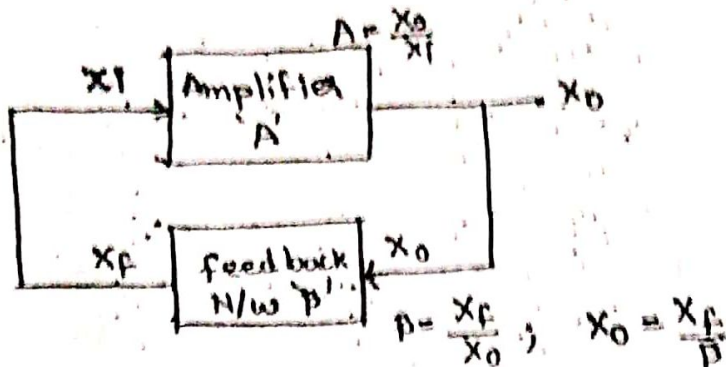 A = Xo/Xi
Xi
Amplifier
'A'
Xo
Xf
feedback
N/w 'β'
Xo
β = Xf/Xo ; Xo = Xf/β